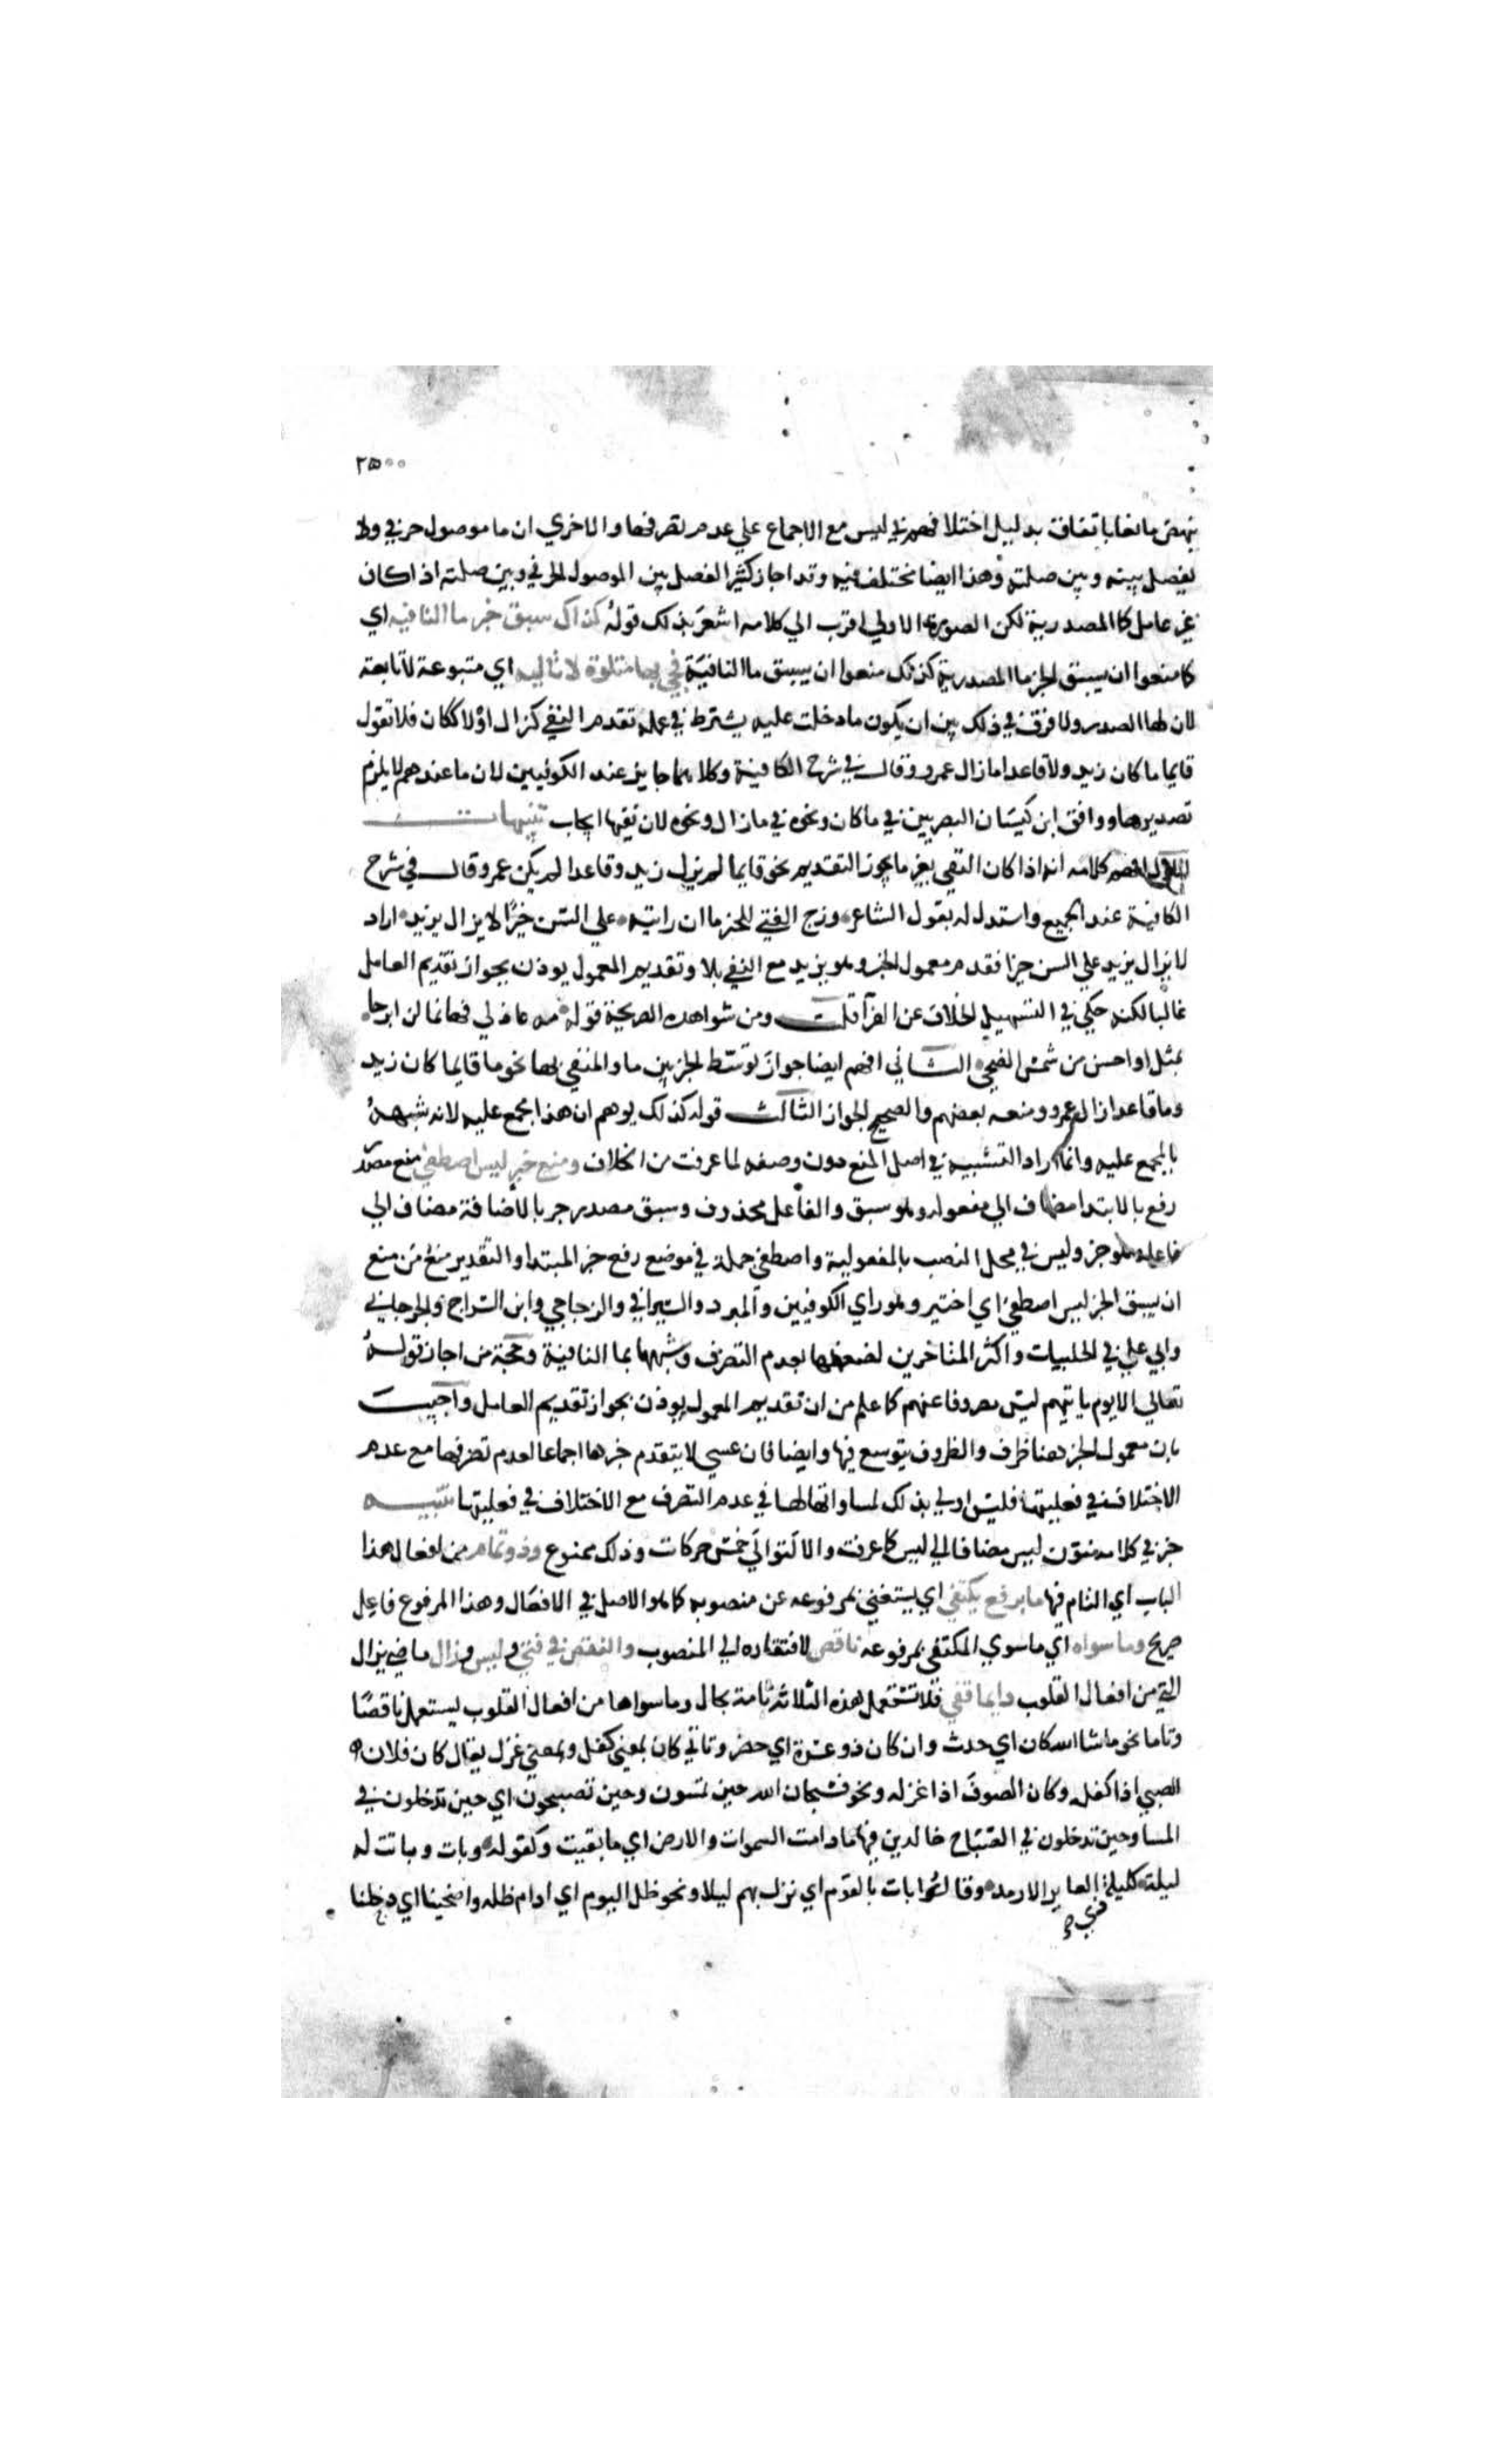 ٢٥٠٠
ينهض مانعا باتفاق بدليل اختلافهم في ليس مع الاجماع علي عدم تصرفها والاخري ان ما موصول حرفي ولا
يفصل بينه وبين صلته وهذا ايضا مختلف فيه وقد اجاز كثير الفصل بين الموصول الحرفي وبين صلته اذا كان
غير عامل كما المصدرية لكن الصورة الاولي اقرب الي كلامه اشعر بذلك قوله كذاك سبق خبر ما النافيه اي
كما منعوا ان يسبق الخبر ما المصدرية كذلك منعوا ان يسبق ما النافية فجئ بها متلوة لا تاليه اي متبوعة لا تابعة
لان لها الصدر ولا فرق في ذلك بين ان يكون ما دخلت عليه يشترط في عمله تقدم النفي كزال اولا ككان فلا تقول
قايما ما كان زيد ولا قاعدا ما زال عمرو وقال في شرح الكافية وكلاهما جايز عند الكوفيين لان ما عندهم لا يلزم
تصديرها ووافق ابن كيسان البصريين في ما كان ونحوه في ما زال ونحوه لان نفيها ايجاب تنبيهات
الاول افهم كلامه انه اذا كان النفي بغير ما يجوز التقديم نحو قايما لم يزل زيد وقاعدا لم يكن عمرو وقال في شرح
الكافية عند الجميع واستدل له بقول الشاعر ورج الفتي للخير ما ان رايته علي السن خيرا لا يزال يزيد اراد
لا يزال يزيد علي السن خيرا فقدم معمول الخبر وهو يزيد مع النفي بلا وتقديم المعمول يوذن بجواز تقديم العامل
غالبا لكنه حكي في التسهيل الخلاف عن الفرآ قلت ومن شواهده الصريحة قوله مه عاذلي فهائما لن ابرحا
بمثل او احسن من شمس الضحي الثاني افهم ايضا جواز توسط الخبر بين ما والمنفي بها نحو ما قايما كان زيد
وما قاعدا زال عمرو ومنعه بعضهم والصحيح الجواز الثالث قوله كذلك يوهم ان هذا مجمع عليه لانه شبهه
بالمجمع عليه وانما اراد التشبيه في اصل المنع دون وصفه لما عرفت من الخلاف ومنع خبر ليس اصطفي منع مصدر
رفع بالابتدا مضاف الي مفعوله وهو سبق والفاعل محذوف وسبق مصدر جر بالاضافة مضاف الي
فاعله وهو خبر وليس في محل النصب بالمفعولية واصطفي جملة في موضع رفع خبر المبتدا والتقدير منع من منع
ان يسبق الخبر ليس اصطفي اي اختير وهو راي الكوفيين والمبرد والسيرافي والزجاجي وابن السراج والجرجاني
وابي علي في الحلبيات واكثر المتاخرين لضعفها بعدم التصرف وشبهها بما النافية وحجة من اجاز قوله
تعالي الا يوم ياتيهم ليس مصروفا عنهم كما علم من ان تقديم المعمول يوذن بجواز تقديم العامل واجيب
بان معمول الخبر هنا ظرف والظروف يتوسع فيها وايضا فان عسي لا يتقدم خبرها اجماعا لعدم تصرفها مع عدم
الاختلاف في فعليتها فليس اولي بذلك لمساواتها لها في عدم التصرف مع الاختلاف في فعليتها تنبيه
خبر في كلامه منون ليس مضافا الي ليس كما عرفت والا لتوالي خمس حركات وذلك ممنوع وذو تمام من افعال هذا
الباب اي التام فيها ما برفع يكتفي اي يستغني بمرفوعه عن منصوبه كما هو الاصل في الافعال وهذا المرفوع فاعل
صريح وما سواه اي ما سوي المكتفي بمرفوعه ناقص لافتقاره الي المنصوب والنقص في فتي وليس وزال ماضي يزال
التي من افعال القلوب دايما قفي فلا تستعمل هذه الثلاثة تامة بحال وما سواها من افعال القلوب يستعمل ناقصا
وتاما نحو ما شا الله كان اي حدث وان كان ذو عسرة اي حضر وتاتي كان بمعني كفل وبمعني غزل يقال كان فلان
الصبي اذا كفله وكان الصوف اذا غزله ونحو فسبحان الله حين تمسون وحين تصبحون اي حين تدخلون في
المسا وحين تدخلون في الصباح خالدين فيها ما دامت السموات والارض اي ما بقيت وكقوله وبات وباتت له
ليلة كليلة العاير الارمد وقالوا بات بالقوم اي نزل بهم ليلا ونحو ظل اليوم اي ادام ظله واضحينا اي دخلنا